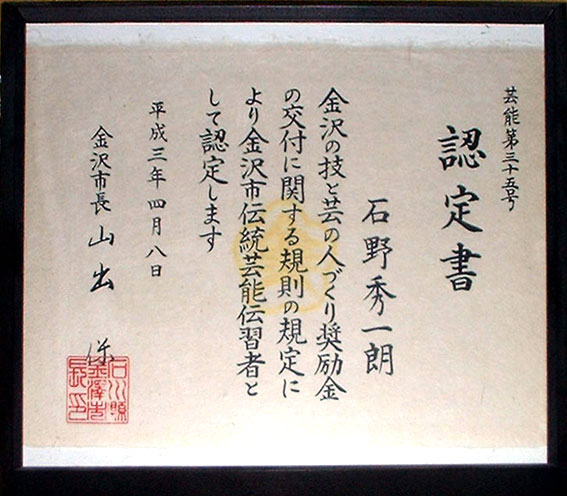 芸能第三十五号
認定書
石野秀一朗
金沢の技と芸の人づくり奨励金
の交付に関する規則の規定に
より金沢市伝統芸能伝習者と
して認定します
平成三年四月八日
金沢市長 山出 保
石川縣
金澤市
長印